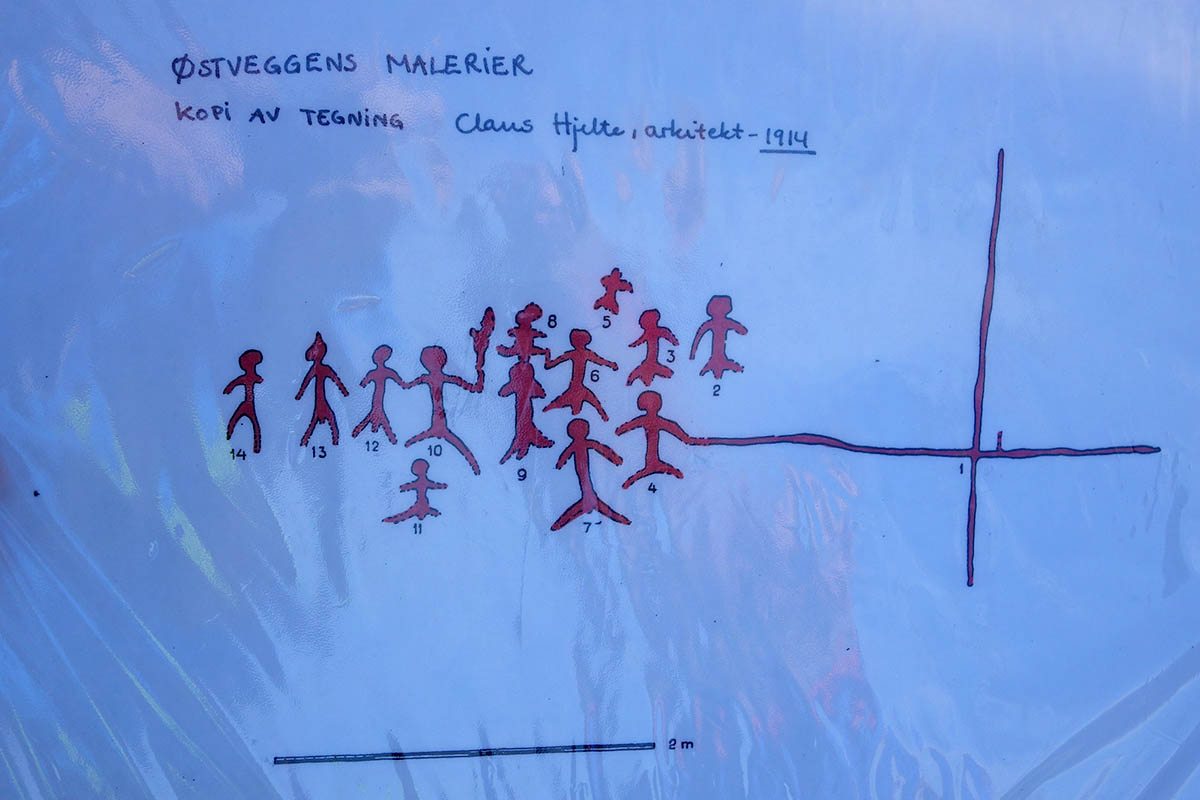 ØSTVEGGENS MALERIER
KOPI AV TEGNING Claus Hjelte, arkitekt - 1914
5
8
3
6
2
14
13
12
10
9
4
1
11
7
2 m